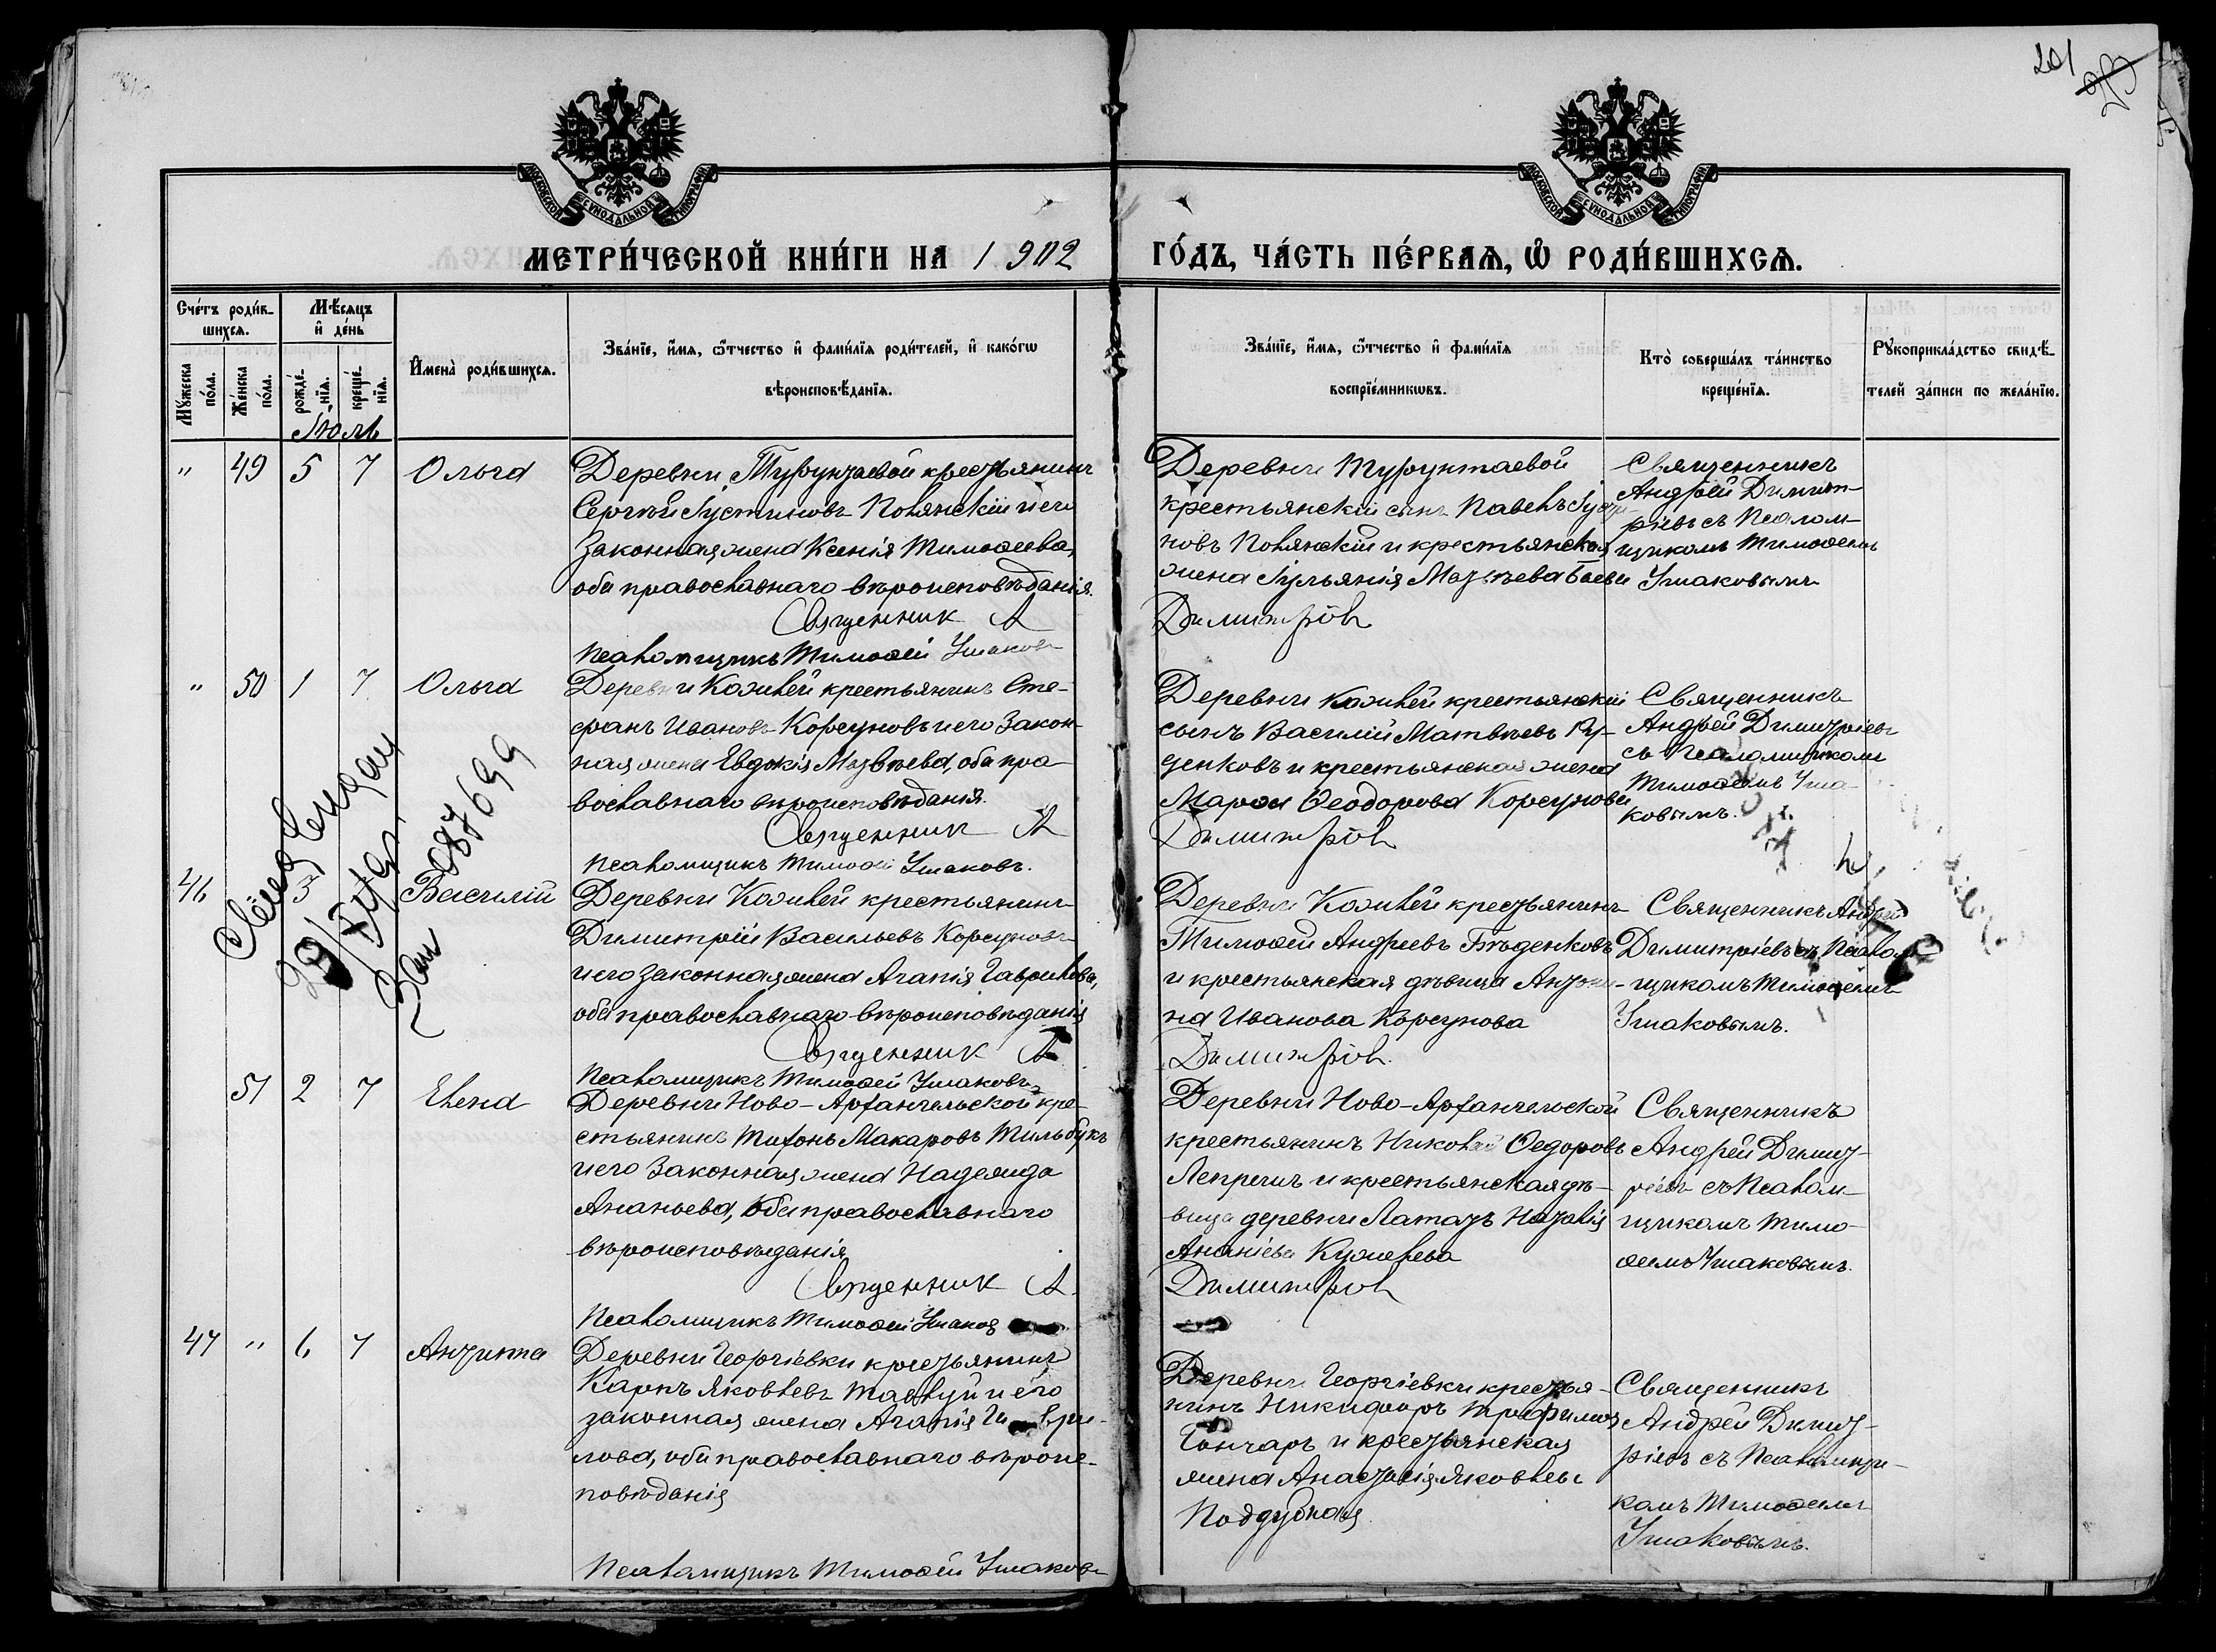 201
МОСКОВСКОЙ СѴНОДАЛЬНОЙ ТИПОГРАФІИ
МОСКОВСКОЙ СѴНОДАЛЬНОЙ ТИПОГРАФІИ
МЕТРИ́ЧЕСКОЙ КНИ́ГИ НА 1902 ГО́ДЪ, ЧА́СТЬ ПЕ́РВАѦ, Ѡ҆ РОДИ́ВШИХСѦ.
Сче́тъ роди́в-
шихсѧ.
Мꙋжеска по́ла.
Же́нска по́ла.
Мѣ́сѧцъ
и҆ де́нь
рожде́-
нїѧ.
креще́-
нїѧ.
Іюль
И҆мена̀ роди́вшихсѧ.
Зва́нїе, и҆́мѧ, ѻ҆́тчество и҆ фами́лїѧ роди́телей, и҆ како́гѡ
вѣроисповѣ́данїѧ.
Зва́нїе, и҆́мѧ, ѻ҆́тчество и҆ фами́лїѧ
воспрїе́мникѡвъ.
Кто̀ соверша́лъ та́инство
креще́нїѧ.
Рꙋкоприкла́дство свидѣ́-
телей за́писи по жела́нїю.
" 49 5 7 Ольга
Деревни Турунтаевой крестьянинъ
Сергѣй Іустиновъ Полянскій и его
законная жена Ксенія Тимоѳеева,
оба православнаго вѣроисповѣданія.
Священник А
Псаломщикъ Тимоѳей Ушаковъ
Деревни Турунтаевой
крестьянскій сынъ Павелъ Іусти-
новъ Полянскій и крестьянская
жена Іульянія Матѣева
Димитров
Священникъ
Андрей Димит-
ріевъ съ Псалом-
щикомъ Тимоѳеемъ
Ушаковымъ
" 50 1 7 Ольга
Деревни Кожилей крестьянинъ Сте-
фанъ Ивановъ Корсуновъ и его закон-
ная жена Евдокія Матвѣева, оба пра
вославнаго вѣроисповѣданія.
Священник А
Псаломщикъ Тимоѳей Ушаковъ.
Деревни Кожилей крестьянскій
сынъ Василій Матвѣевъ Ру-
денковъ и крестьянская жена
Марѳа Ѳеодорова Корсунова
Димитров
Священникъ
Андрей Димитріевъ
съ Псаломщикомъ
Тимоѳеемъ Уша
ковымъ.
087699
46 3 Василій
Деревни Кожилей крестьянинъ
Димитрій Васильевъ Корсуновъ
и его законная жена Агапія Гаврилова,
оба православнаго вѣроисповѣданія
Священник А
Псаломщикъ Тимоѳей Ушаковъ
Деревни Кожилей крестьянинъ
Тимоѳей Андреевъ Бѣденковъ
и крестьянская дѣвица Антони-
на Иванова Корсунова
Димитров.
Священникъ Андрей
Димитріевъ съ Псалом
щикомъ Тимоѳеемъ
Ушаковымъ.
51 2 7 Елена
Деревни Ново-Архангельской кре-
стьянинъ Тихонъ Макаровъ
и его законная жена Надежда
Ананьева, оба православнаго
вѣроисповѣданія
Священник А
Псаломщикъ Тимоѳей Ушаков
Деревни Ново-Архангельской
крестьянинъ Николай Ѳедоровъ
и крестьянская дѣ-
вица деревни Наталія
Ананіева
Димитров
Священникъ
Андрей Димит-
ріевъ съ Псалом-
щикомъ Тимо-
ѳеемъ Ушаковымъ.
47 " 6 7 Антипа
Деревни Георгіевки крестьянинъ
Карпъ Яковлевъ и его
законная жена Агапія Гаври-
лова, оба православнаго вѣроис-
повѣданія
Псаломщикъ Тимоѳей Ушаковъ
Деревни Георгіевки крестья-
нинъ Никифоръ Трофимовъ
Гончаръ и крестьянская
жена Анастасія Яковлева
Поддубная
Священникъ
Андрей Димит-
ріевъ съ Псаломщи-
комъ Тимоѳеемъ
Ушаковымъ.